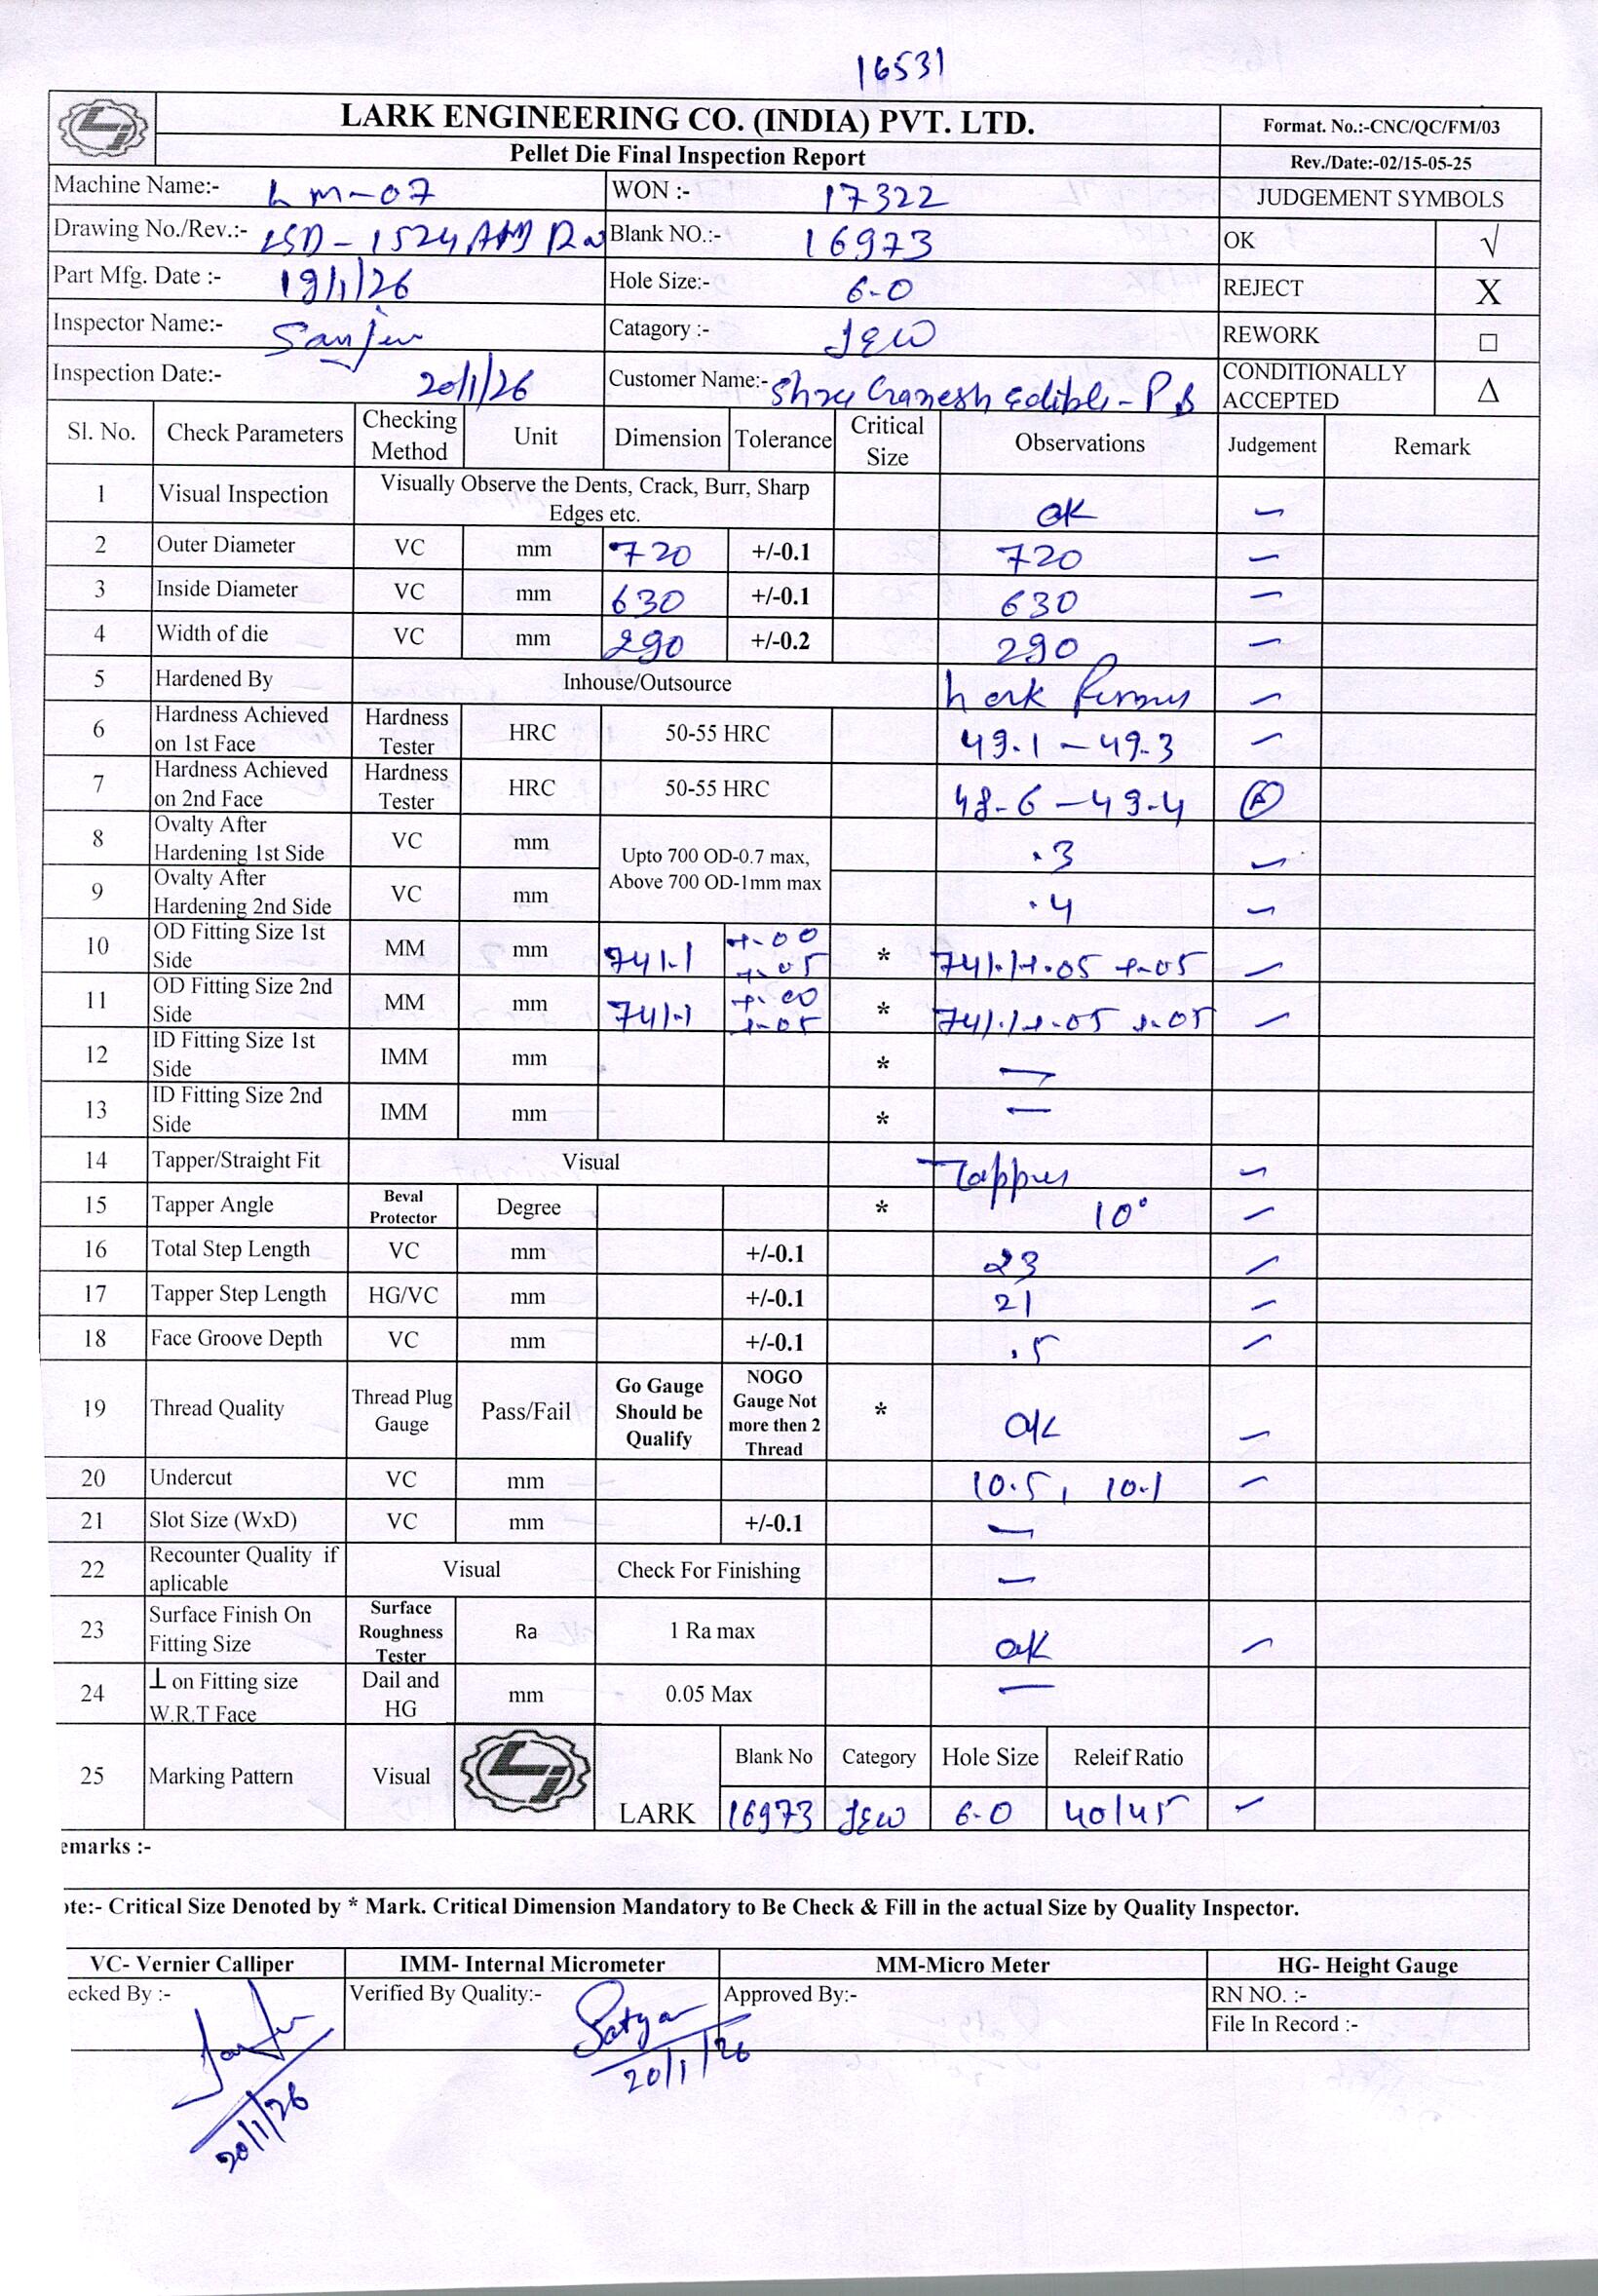 16531
LARK ENGINEERING CO. (INDIA) PVT. LTD.
Format. No.:-CNC/QC/FM/03
Pellet Die Final Inspection Report
Rev./Date:-02/15-05-25
Machine Name:- LM-07 WON :- 17322 JUDGEMENT SYMBOLS
Drawing No./Rev.:- LSD-1524 Blank NO.:- 16973 OK √
Part Mfg. Date :- 19/1/26 Hole Size:- 6-0 REJECT X
Inspector Name:- Sanjeev Catagory :- JEW REWORK □
Inspection Date:- 20/1/26 Customer Name:- Shree Ganesh Edibls - PB CONDITIONALLY ACCEPTED Δ
Sl. No. Check Parameters Checking Method Unit Dimension Tolerance Critical Size Observations Judgement Remark
1 Visual Inspection Visually Observe the Dents, Crack, Burr, Sharp Edges etc. ok
2 Outer Diameter VC mm 720 +/-0.1 720
3 Inside Diameter VC mm 630 +/-0.1 630
4 Width of die VC mm 290 +/-0.2 290
5 Hardened By Inhouse/Outsource Lark
6 Hardness Achieved on 1st Face Hardness Tester HRC 50-55 HRC 49.1 - 49.3
7 Hardness Achieved on 2nd Face Hardness Tester HRC 50-55 HRC 48.6 - 49.4
8 Ovalty After Hardening 1st Side VC mm Upto 700 OD-0.7 max, Above 700 OD-1mm max .3
9 Ovalty After Hardening 2nd Side VC mm .4
10 OD Fitting Size 1st Side MM mm 741.1 +.00 +.05 * 741.1 +.05 +.05
11 OD Fitting Size 2nd Side MM mm 741.1 +.00 +.05 * 741.1 +.05 +.05
12 ID Fitting Size 1st Side IMM mm * —
13 ID Fitting Size 2nd Side IMM mm * —
14 Tapper/Straight Fit Visual Tapper
15 Tapper Angle Beval Protector Degree * 10°
16 Total Step Length VC mm +/-0.1 23
17 Tapper Step Length HG/VC mm +/-0.1 21
18 Face Groove Depth VC mm +/-0.1 .5
19 Thread Quality Thread Plug Gauge Pass/Fail Go Gauge Should be Qualify NOGO Gauge Not more then 2 Thread * ok
20 Undercut VC mm 10.5, 10.1
21 Slot Size (WxD) VC mm +/-0.1 —
22 Recounter Quality if aplicable Visual Check For Finishing —
23 Surface Finish On Fitting Size Surface Roughness Tester Ra 1 Ra max ok
24 ⊥ on Fitting size W.R.T Face Dail and HG mm 0.05 Max —
25 Marking Pattern Visual LARK Blank No Category Hole Size Releif Ratio
16973 JEW 6-0 40/45
emarks :-
ote:- Critical Size Denoted by * Mark. Critical Dimension Mandatory to Be Check & Fill in the actual Size by Quality Inspector.
VC- Vernier Calliper IMM- Internal Micrometer MM-Micro Meter HG- Height Gauge
ecked By :- Verified By Quality:- Satya Approved By:- RN NO. :-
File In Record :-
20/1/26
20/1/26